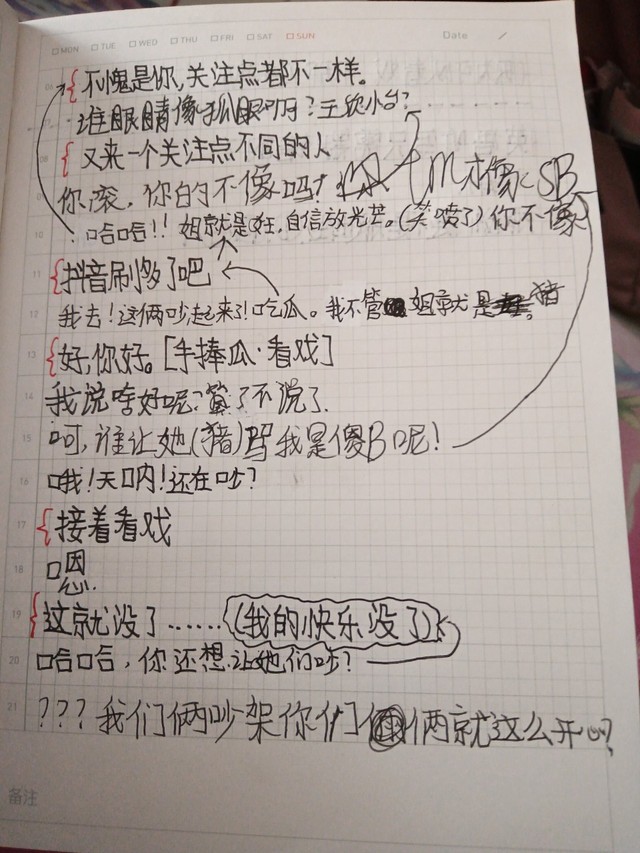 MON TUE WED THU FRI SAT SUN Date
不愧是你,关注点都不一样。
谁眼睛像狐眼呀?王欣小台?
又来一个关注点不同的人
你滚,你的不像吗! TM才像SB
10 哈哈!! 姐就是狂,自信放光芒。(笑喷了)你不像
11 抖音刷多了吧
12 我去!这俩吵起来了!吃瓜。我不管 姐就是 猪。
13 好,你好。[手捧瓜·看戏]
14 我说啥好呢?算了不说了.
15 呵,谁让她(猪)骂我是傻B呢!
16 哦!天呐!还在吵?
17 接着看戏
18 嗯
19 这就没了......(我的快乐没了)
20 哈哈,你还想让她们吵?
21 ???我们俩吵架你们俩就这么开心?
备注